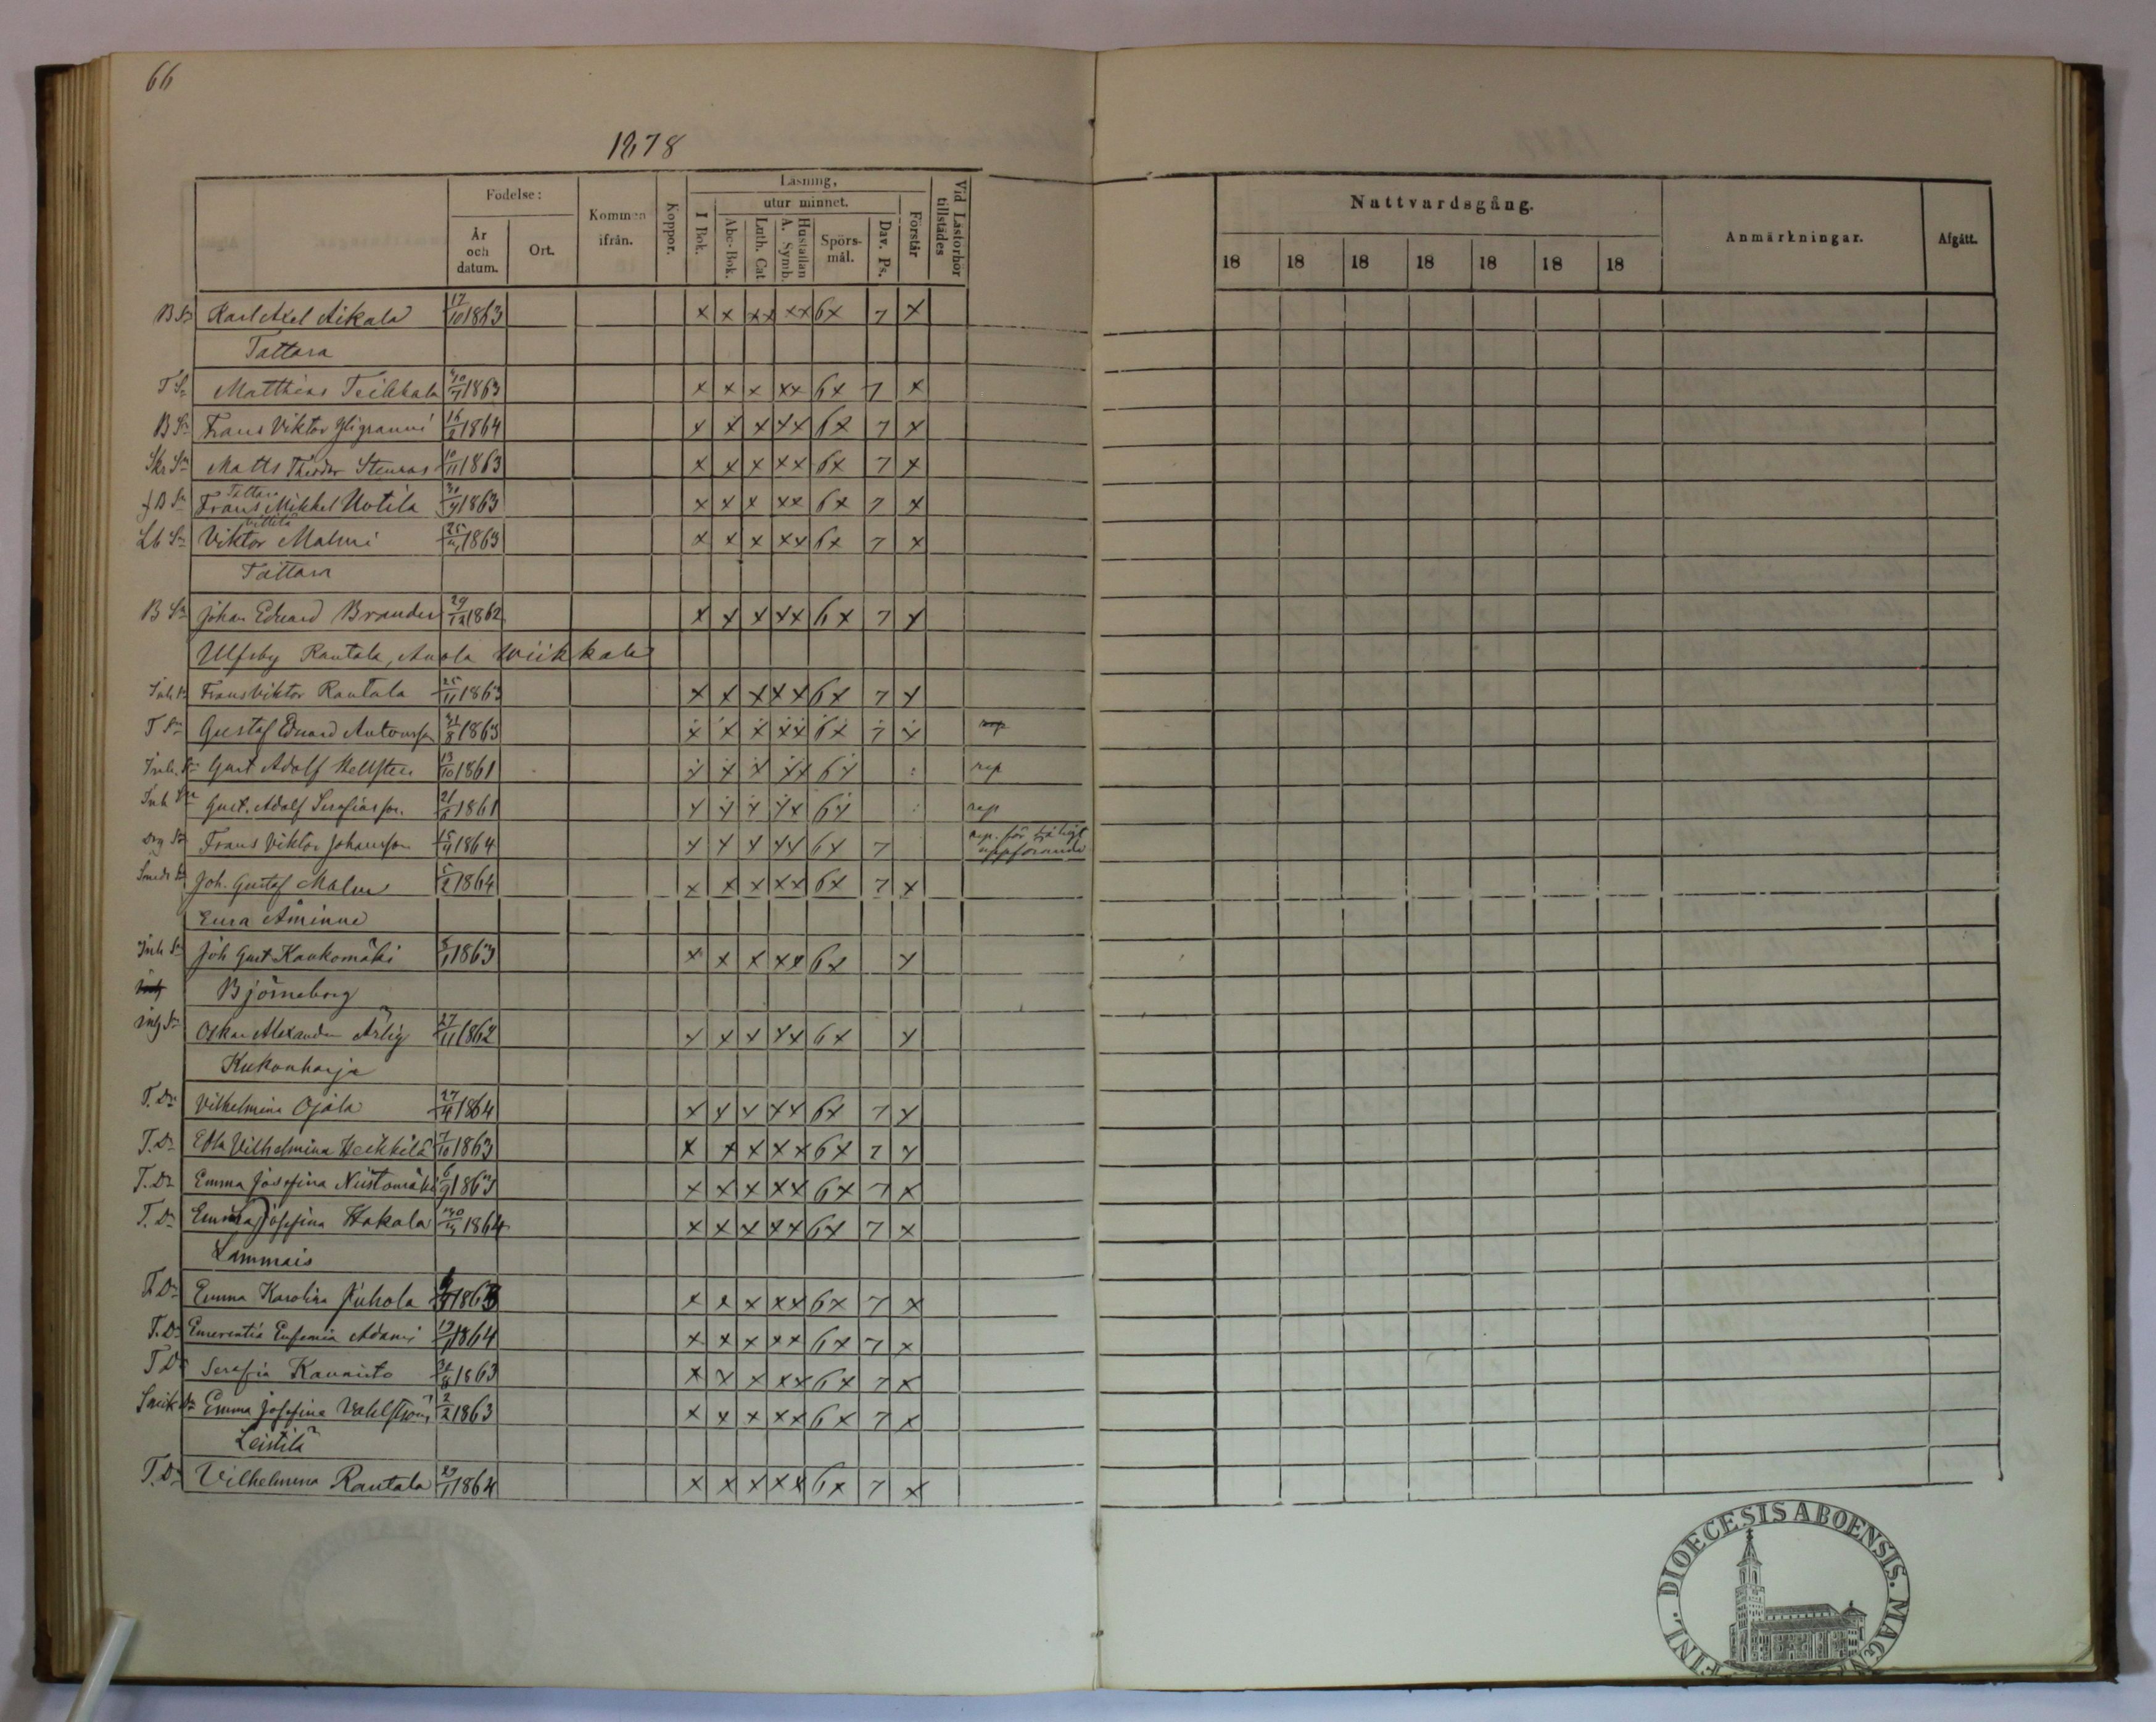 66
1878
Födelse:
År och datum.
Ort.
Kommen ifrån.
Koppor.
Läsning,
utur minnet.
I Bok.
Abc-Bok.
Luth. Cat
Hustaflan A. Symb.
Spörsmål.
Dav. Ps.
Förstår
Vid Läsförhör tillstädes
Nattvardsgång.
18 18 18 18 18 18 18
Anmärkningar.
Afgått.
B Sn Karl Axel Aikala 17/10 1863 x x xx xx 6x 7 x
Tattara
T Sn Matthias Teikkala 1863 x x x xx 6x 7 x
B Sn Frans Viktor Yligranni 16/2 1864 x x x xx 6x 7 x
Skr Sn Matts Theodor Stenroos 10/11 1863 x x x xx 6x 7 x
Tattara
f B Sn Frans Mikkel Uotila 1863 x x x xx 6x 7 x
Vittilä
Lb Sn Viktor Malmi 1863 x x x xx 6x 7 x
Tattara
B Sn Johan Eduard Brander 29/12 1862 x x x xx 6x 7 x
Ulfsby Rautala, Anola Wiikkala
Inh Sn Frans Viktor Rautala 25/11 1863 x x x xx 6x 7 x
T Sn Gustaf Eduard Antonsson 31/8 1863 x x x xx 6x 7 x rep
Inh. Sn Gust Adolf Hellsten 13/10 1861 x x x xx 6x rep
Inh Sn Gust. Adolf Serafiasson. 1861 x x x xx 6x rep
Drg Sn Frans Viktor Johansson 1864 x x x xx 6x 7 rep. för uppförande
Smeds Sn Joh. Gustaf Malm 5/2 1864 x x x xx 6x 7 x
Eura Åminne
Inh Sn Joh Gust Kaukomäki 5/1 1863 x x x xx 6x x
Björneborg
inh Sn Oskar Alexander Ärlig 27/11 1862 x x x xx 6x x
Kukonharja
T. Dr Vilhelmina Ojala 27/4 1864 x x x xx 6x 7 x
T. Dr Edla Vilhelmina Heikkilä 7/10 1863 x x x xx 6x 7 x
T. Dr Emma Josefina Niistomäki 6/9 1863 x x x xx 6x 7 x
T. Dr Emma Josefina Hakala 1864 x x x xx 6x 7 x
Lammais
T. Dr Emma Karolina Juhola 1863 x x x xx 6x 7 x
T. Dr Emerentia Eufemia Adami 1864 x x x xx 6x 7 x
T Dr Serafia Kaunisto 1863 x x x xx 6x 7 x
Emma Josefina Vahlström 2/2 1863 x x x xx 6x 7 x
Leistilä
T. Dr Vilhelmina Rautala 29/1 1864 x x x xx 6x 7 x
FINL. DIOECESIS ABOENSIS. MAGNI